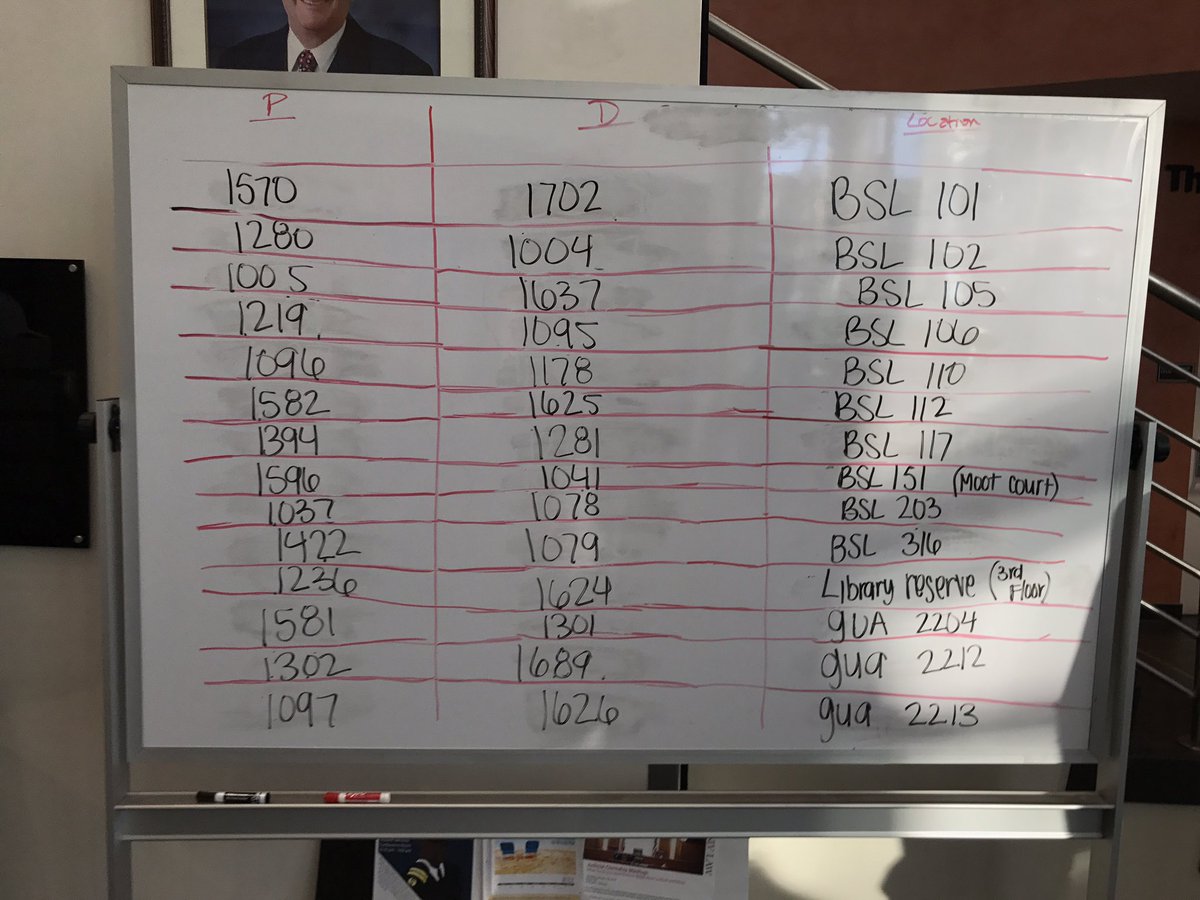 P D Location
1570 1702 BSL 101
1280 1004 BSL 102
1005 1637 BSL 105
1219. 1095 BSL 106
1096 1178 BSL 110
1582 1625 BSL 112
1394 1281 BSL 117
1596 1041 BSL 151 (Moot court)
1037 1078 BSL 203
1422 1079 BSL 316
1236 1624 Library reserve (3rd Floor)
1581 1301 gUA 2204
1302 1689. gua 2212
1097 1626 gua 2213
Th